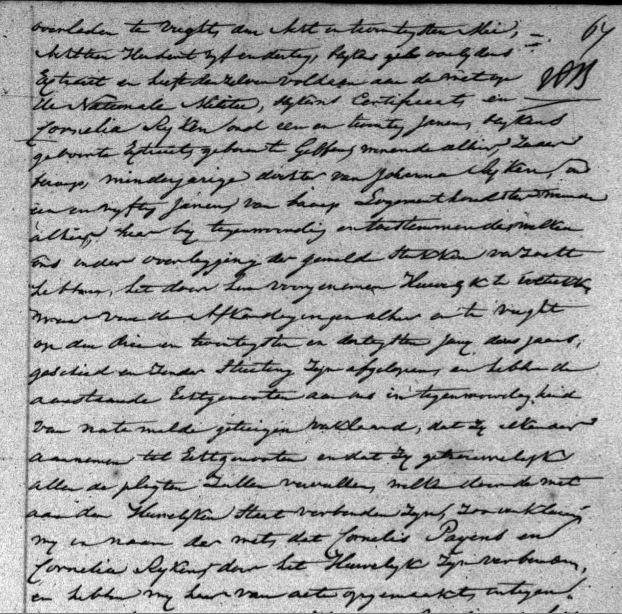 overleden te Vught, den Acht en twintigsten Mei, 67
Achttien Honderd vyf en dertig, blykens gelevende
Extract en heeft den zelven voldaan aan de wet op
de Nationale Militie, blykens Certificaat, en
Cornelia Ryken oud een en twintig Jaren, blykens
geboorte Extract, geboren te Geffen, wonende alhier, zonder
beroep, minderjarige dochter van Johanna Ryken, oud
een en vyftig Jaren, van beroep Logementhoudster wonende
alhier, hier by tegenwoordig en toestemmende welke
ons onder overlegging der gemelde stukken verzocht
hebben, het door hen voorgenomen Huwelyk te voltrekken,
waar van de Afkondigingen alhier en te Vught
op den drie en twintigsten en dertigsten Juny dezes jaars,
geschied en zonder Stuiting zyn afgelopen, en hebben de
aanstaande Echtgenooten aan ons in tegenwoordigheid
van na te melde getuigen verklaard, dat zy elkander
aannemen tot Echtgenooten en dat zy getrouwelyk
alle de pligten zullen vervullen, welke door de wet
aan den Huwelyken Staat verbonden zyn, zoo verklaren
wy in naam der wet, dat Cornelis Payens en
Cornelia Ryken, door het Huwelyk zyn verbonden,
en hebben wy hier van acte opgemaakt, in tegen